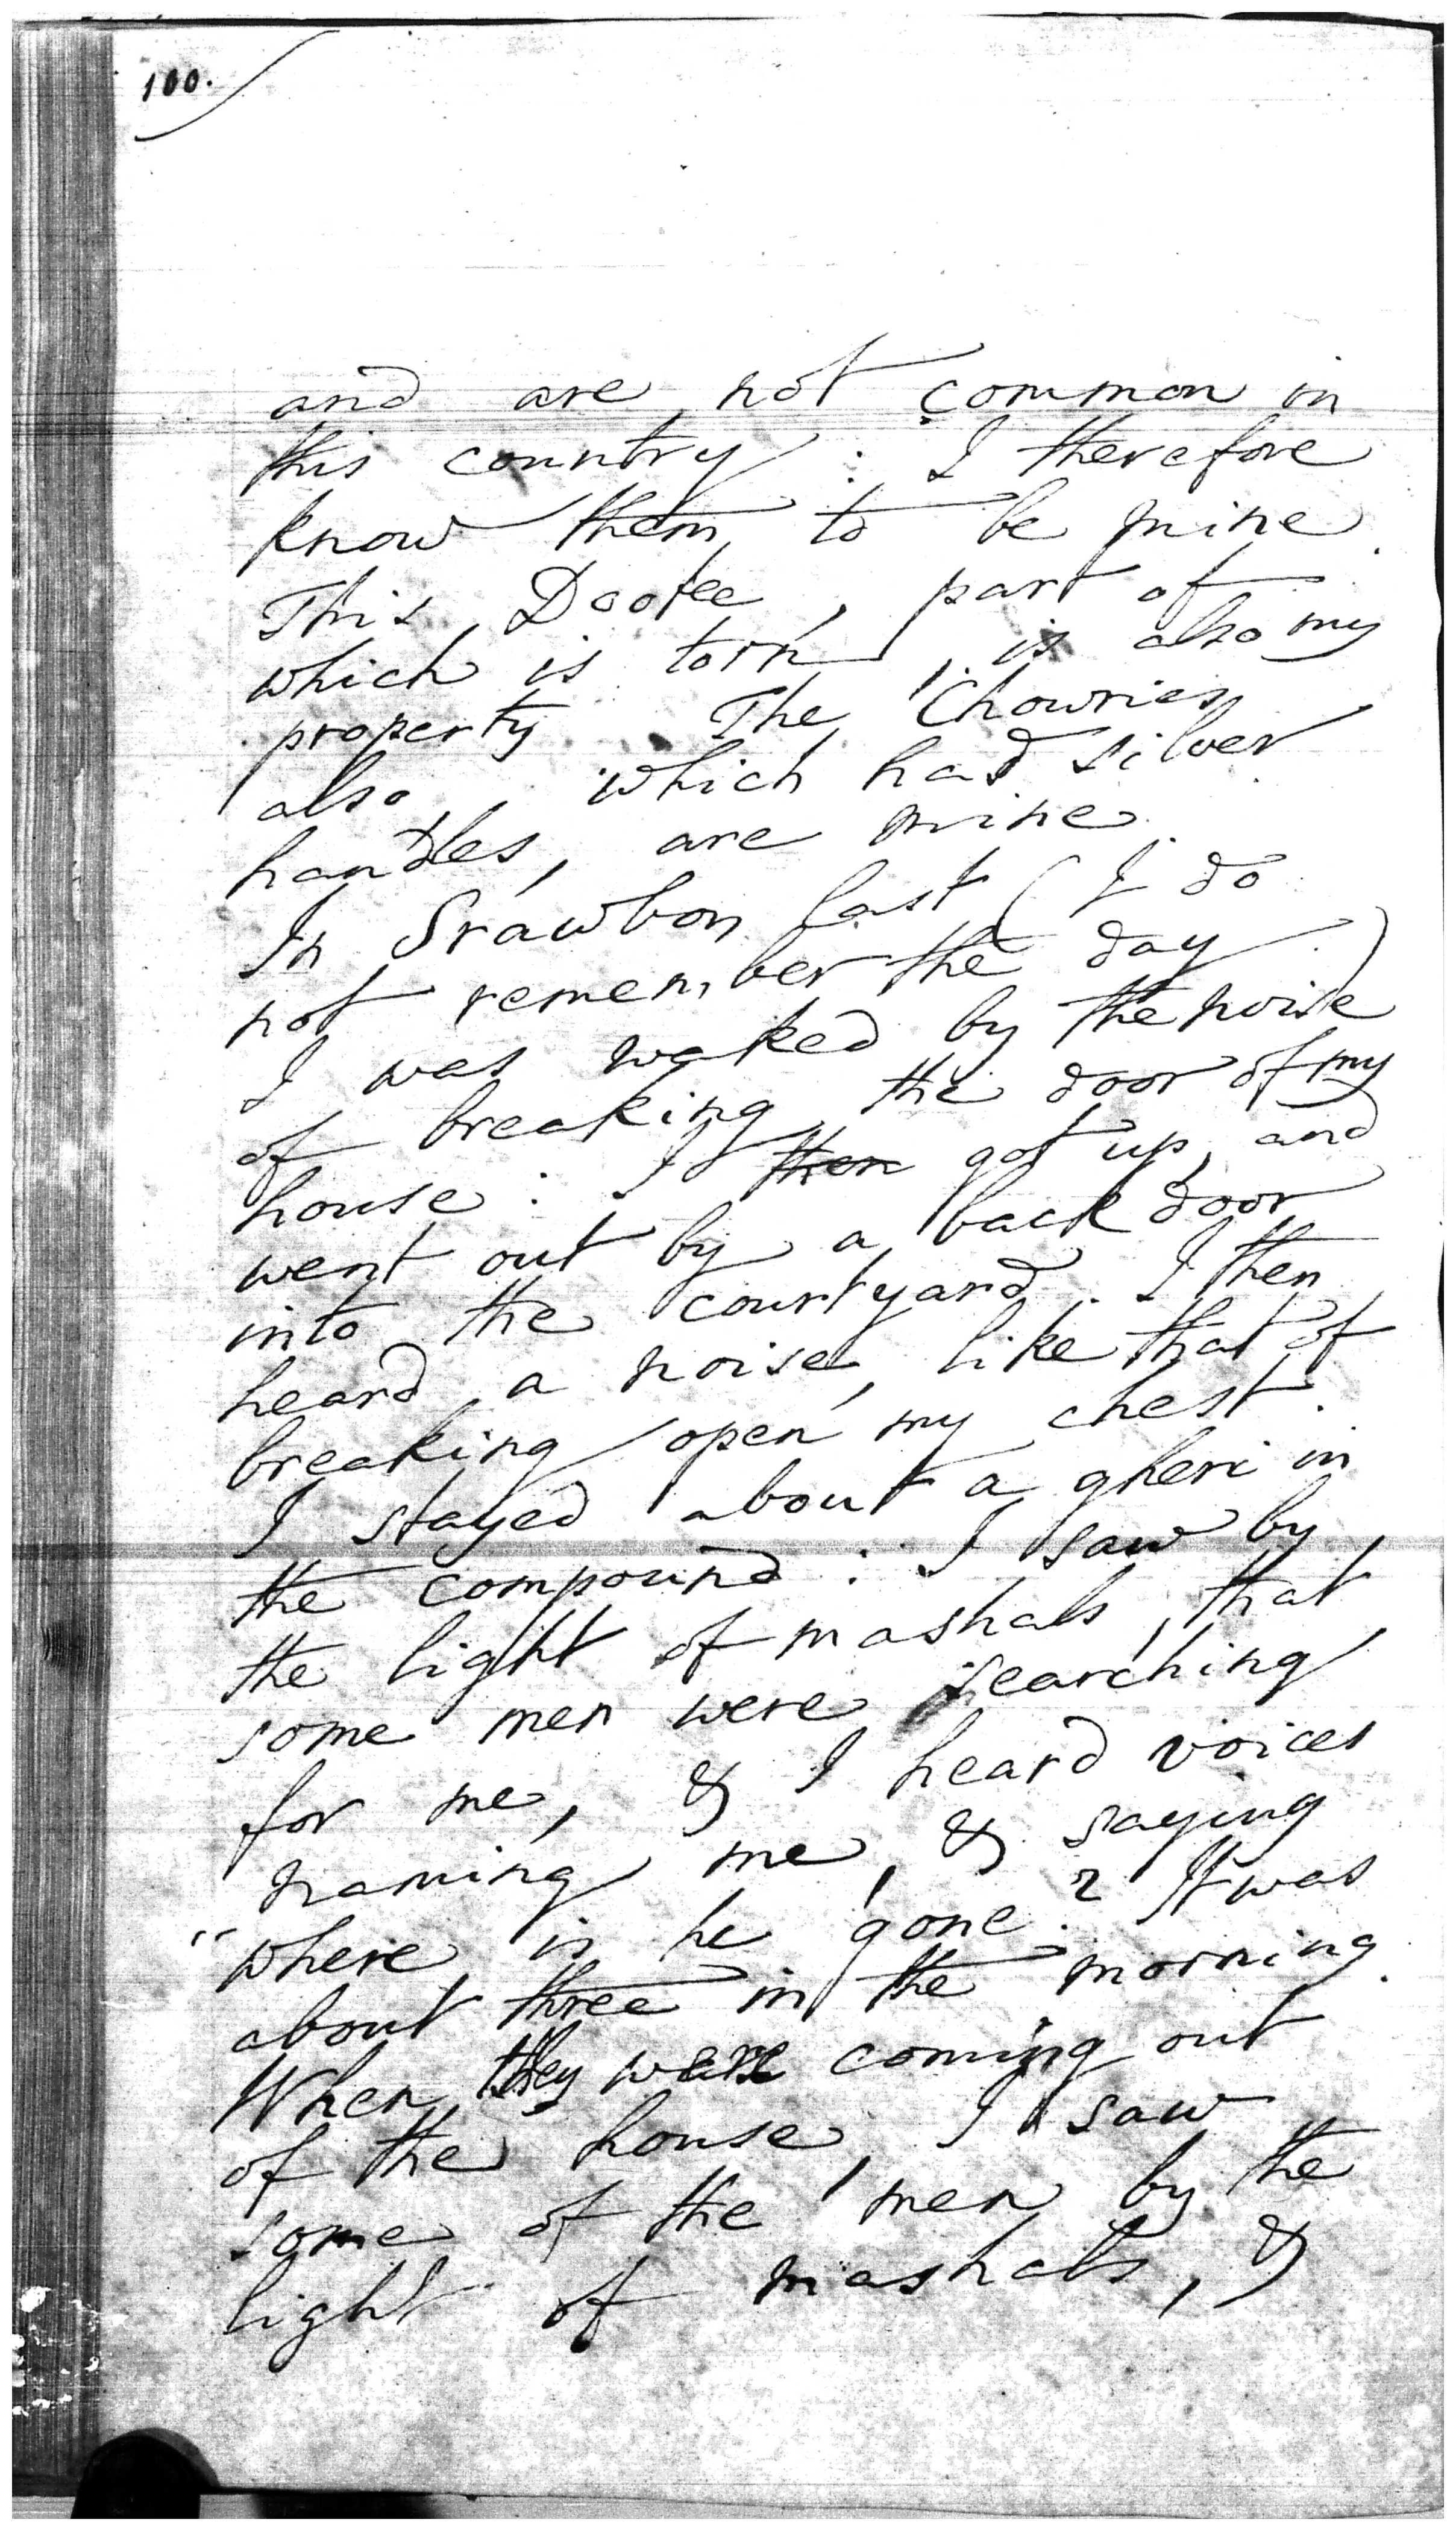 100.
and are not common in
this country : I therefore
know them to be mine.
This Dootee, part of
which is torn, is also my
property. The Chowries
also, which had silver
handles, are mine.
In Srawbon last (I do
not remember the day)
I was waked by the noise
of breaking the door of my
house : I then got up, and
went out by a back door
into the courtyard. I then
heard a noise, like that of
breaking open my chest.
I stayed about a gheri in
the compound : I saw by
the light of mashals, that
some men were searching
for me, & I heard voices
naming me, & saying
"where is he gone? It was
about three in the morning.
When they were coming out
of the house, I saw
some of the men by the
light of mashals, &